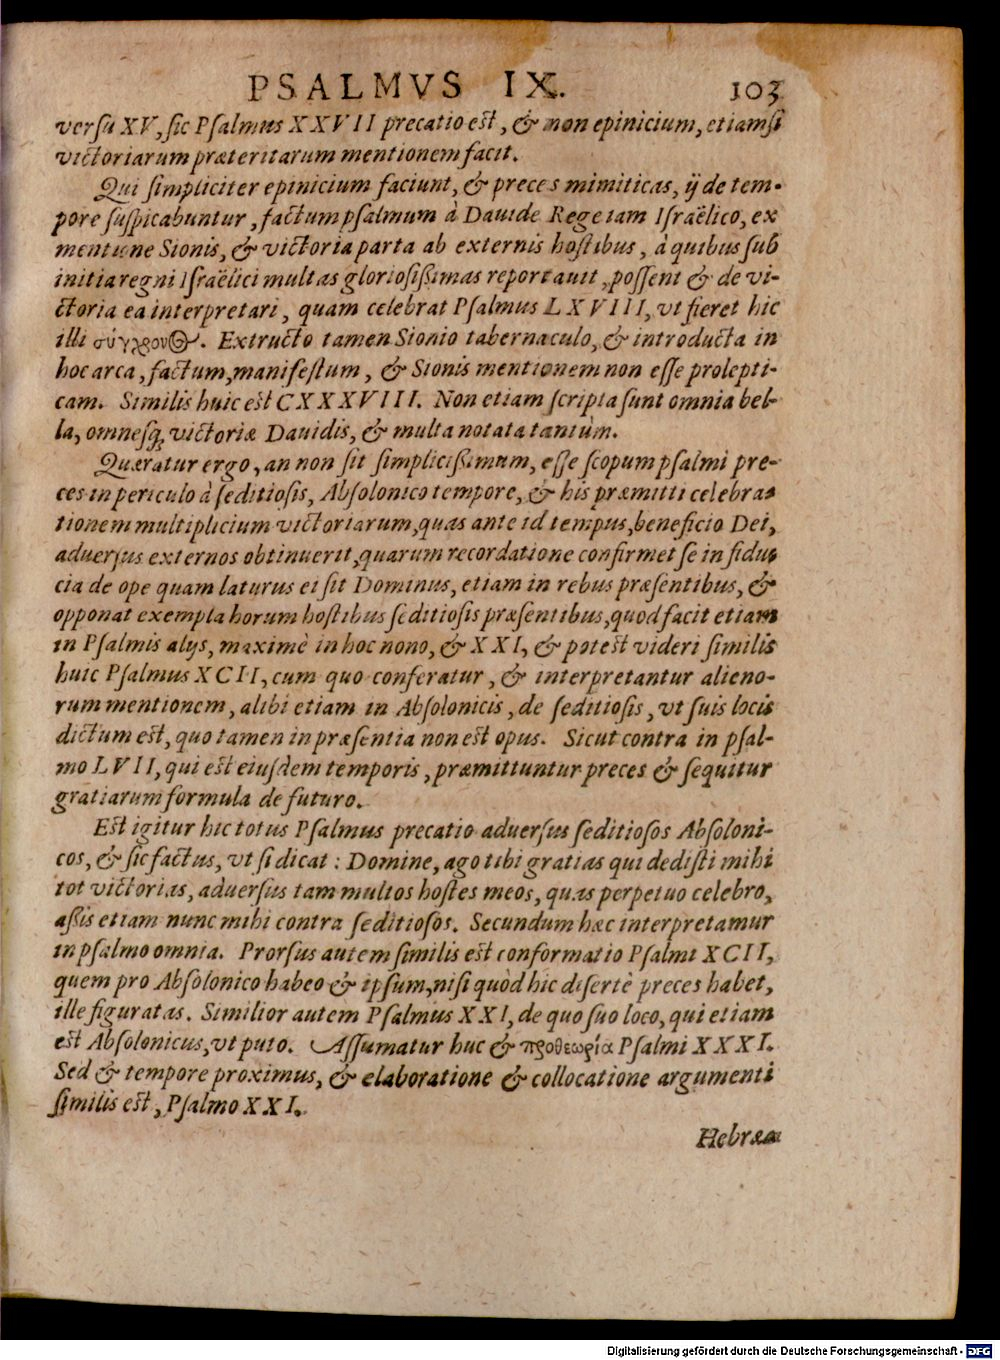 PSALMVS IX. 103
versu XV, sic Psalmus XXVII precatio est, & non epinicium, etiamsi
victoriarum præteritarum mentionem facit.
Qui simpliciter epinicium faciunt, & preces mimiticas, ij de tem-
pore suspicabuntur, factum psalmum à Dauide Rege iam Israëlico, ex
mentione Sionis, & victoria parta ab externis hostibus, à quibus sub
initia regni Israëlici multas gloriosißimas reportauit, possent & de vi-
ctoria ea interpretari, quam celebrat Psalmus LXVIII, vt fieret hic
illi σύγχρονος. Extructo tamen Sionio tabernaculo, & introducta in
hoc arca, factum, manifestum, & Sionis mentionem non esse prolepti-
cam. Similis huic est CXXXVIII. Non etiam scripta sunt omnia bel-
la, omnesq́, victoriæ Dauidis, & multa notata tantùm.
Quæratur ergo, an non sit simplicißimum, esse scopum psalmi pre-
ces in periculo à seditiosis, Absolonico tempore, & his præmitti celebra-
tionem multiplicium victoriarum, quas ante id tempus, beneficio Dei,
aduersus externos obtinuerit, quarum recordatione confirmet se in fidu-
cia de ope quam laturus ei sit Dominus, etiam in rebus præsentibus, &
opponat exempla horum hostibus seditiosis præsentibus, quod facit etiam
in Psalmis alijs, maximè in hoc nono, & XXI, & potest videri similis
huic Psalmus XCII, cum quo conferatur, & interpretantur alieno-
rum mentionem, alibi etiam in Absolonicis, de seditiosis, vt suis locis
dictum est, quo tamen in præsentia non est opus. Sicut contra in psal-
mo LVII, qui est eiusdem temporis, præmittuntur preces & sequitur
gratiarum formula de futuro.
Est igitur hic totus Psalmus precatio aduersus seditiosos Absoloni-
cos, & sic factus, vt si dicat : Domine, ago tibi gratias qui dedisti mihi
tot victorias, aduersus tam multos hostes meos, quas perpetuo celebro,
aßis etiam nunc mihi contra seditiosos. Secundum hæc interpretamur
in psalmo omnia. Prorsus autem similis est conformatio Psalmi XCII,
quem pro Absolonico habeo & ipsum, nisi quòd hic disertè preces habet,
ille figuratas. Similior autem Psalmus XXI, de quo suo loco, qui etiam
est Absolonicus, vt puto. Assumatur huc & προθεωρία Psalmi XXXI.
Sed & tempore proximus, & elaboratione & collocatione argumenti
similis est, Psalmo XXI.
Hebræa
Digitalisierung gefördert durch die Deutsche Forschungsgemeinschaft - DFG